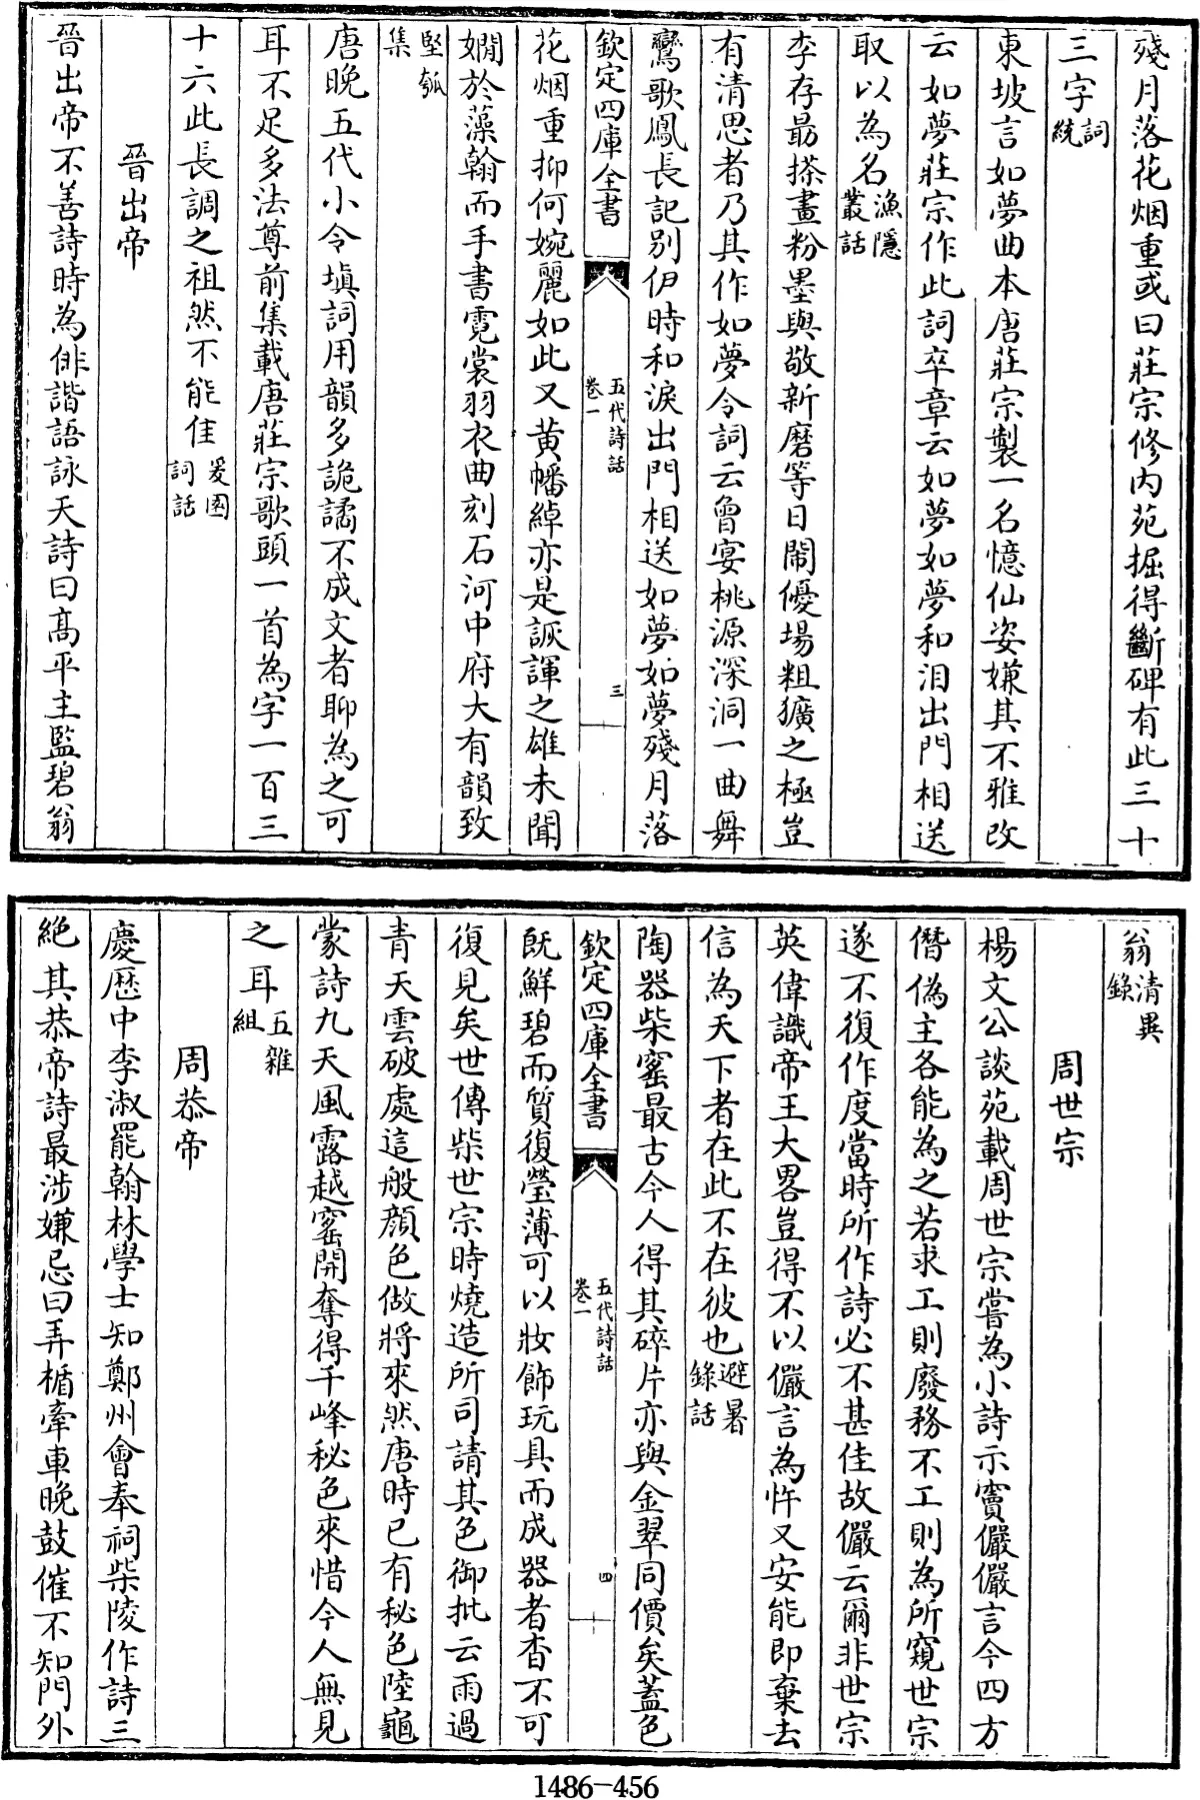 殘月落花烟重或曰莊宗修内苑掘得斷碑有此三十
三字詞統
東坡言如夢曲本唐莊宗製一名憶仙姿嫌其不雅改
云如夢莊宗作此詞卒章云如夢如夢和泪出門相送
取以為名漁隱叢話
李存勗搽畫粉墨與敬新磨等日鬧優場粗獷之極豈
有清思者乃其作如夢令詞云曾宴桃源深洞一曲舞
鸞歌鳳長記别伊時和淚出門相送如夢如夢殘月落
欽定四庫全書
五代詩話
卷一
三
花烟重抑何婉麗如此又黄幡綽亦是詼諢之雄未聞
嫺於藻翰而手書霓裳羽衣曲刻石河中府大有韻致
堅瓠集
唐晚五代小令填詞用韻多詭譎不成文者聊為之可
耳不足多法尊前集載唐莊宗歌頭一首為字一百三
十六此長調之祖然不能佳爰園詞話
晉出帝
晉出帝不善詩時為俳諧語詠天詩曰高平主監碧翁
翁清異錄
周世宗
楊文公談苑載周世宗嘗為小詩示竇儼儼言今四方
僭偽主各能為之若求工則廢務不工則為所窺世宗
遂不復作度當時所作詩必不甚佳故儼云爾非世宗
英偉識帝王大畧豈得不以儼言為忤又安能即棄去
信為天下者在此不在彼也避暑錄話
陶器柴窰最古今人得其碎片亦與金翠同價矣蓋色
欽定四庫全書
五代詩話
卷一
四
既鮮碧而質復瑩薄可以妝飾玩具而成器者杳不可
復見矣世傳柴世宗時燒造所司請其色御批云雨過
青天雲破處這般顔色做將來然唐時已有秘色陸龜
蒙詩九天風露越窰開奪得千峰秘色來惜今人無見
之耳五雜組
周恭帝
慶歷中李淑罷翰林學士知鄭州會奉祠柴陵作詩三
絶其恭帝詩最涉嫌忌曰弄楯牽車晚鼓催不知門外
1486-456